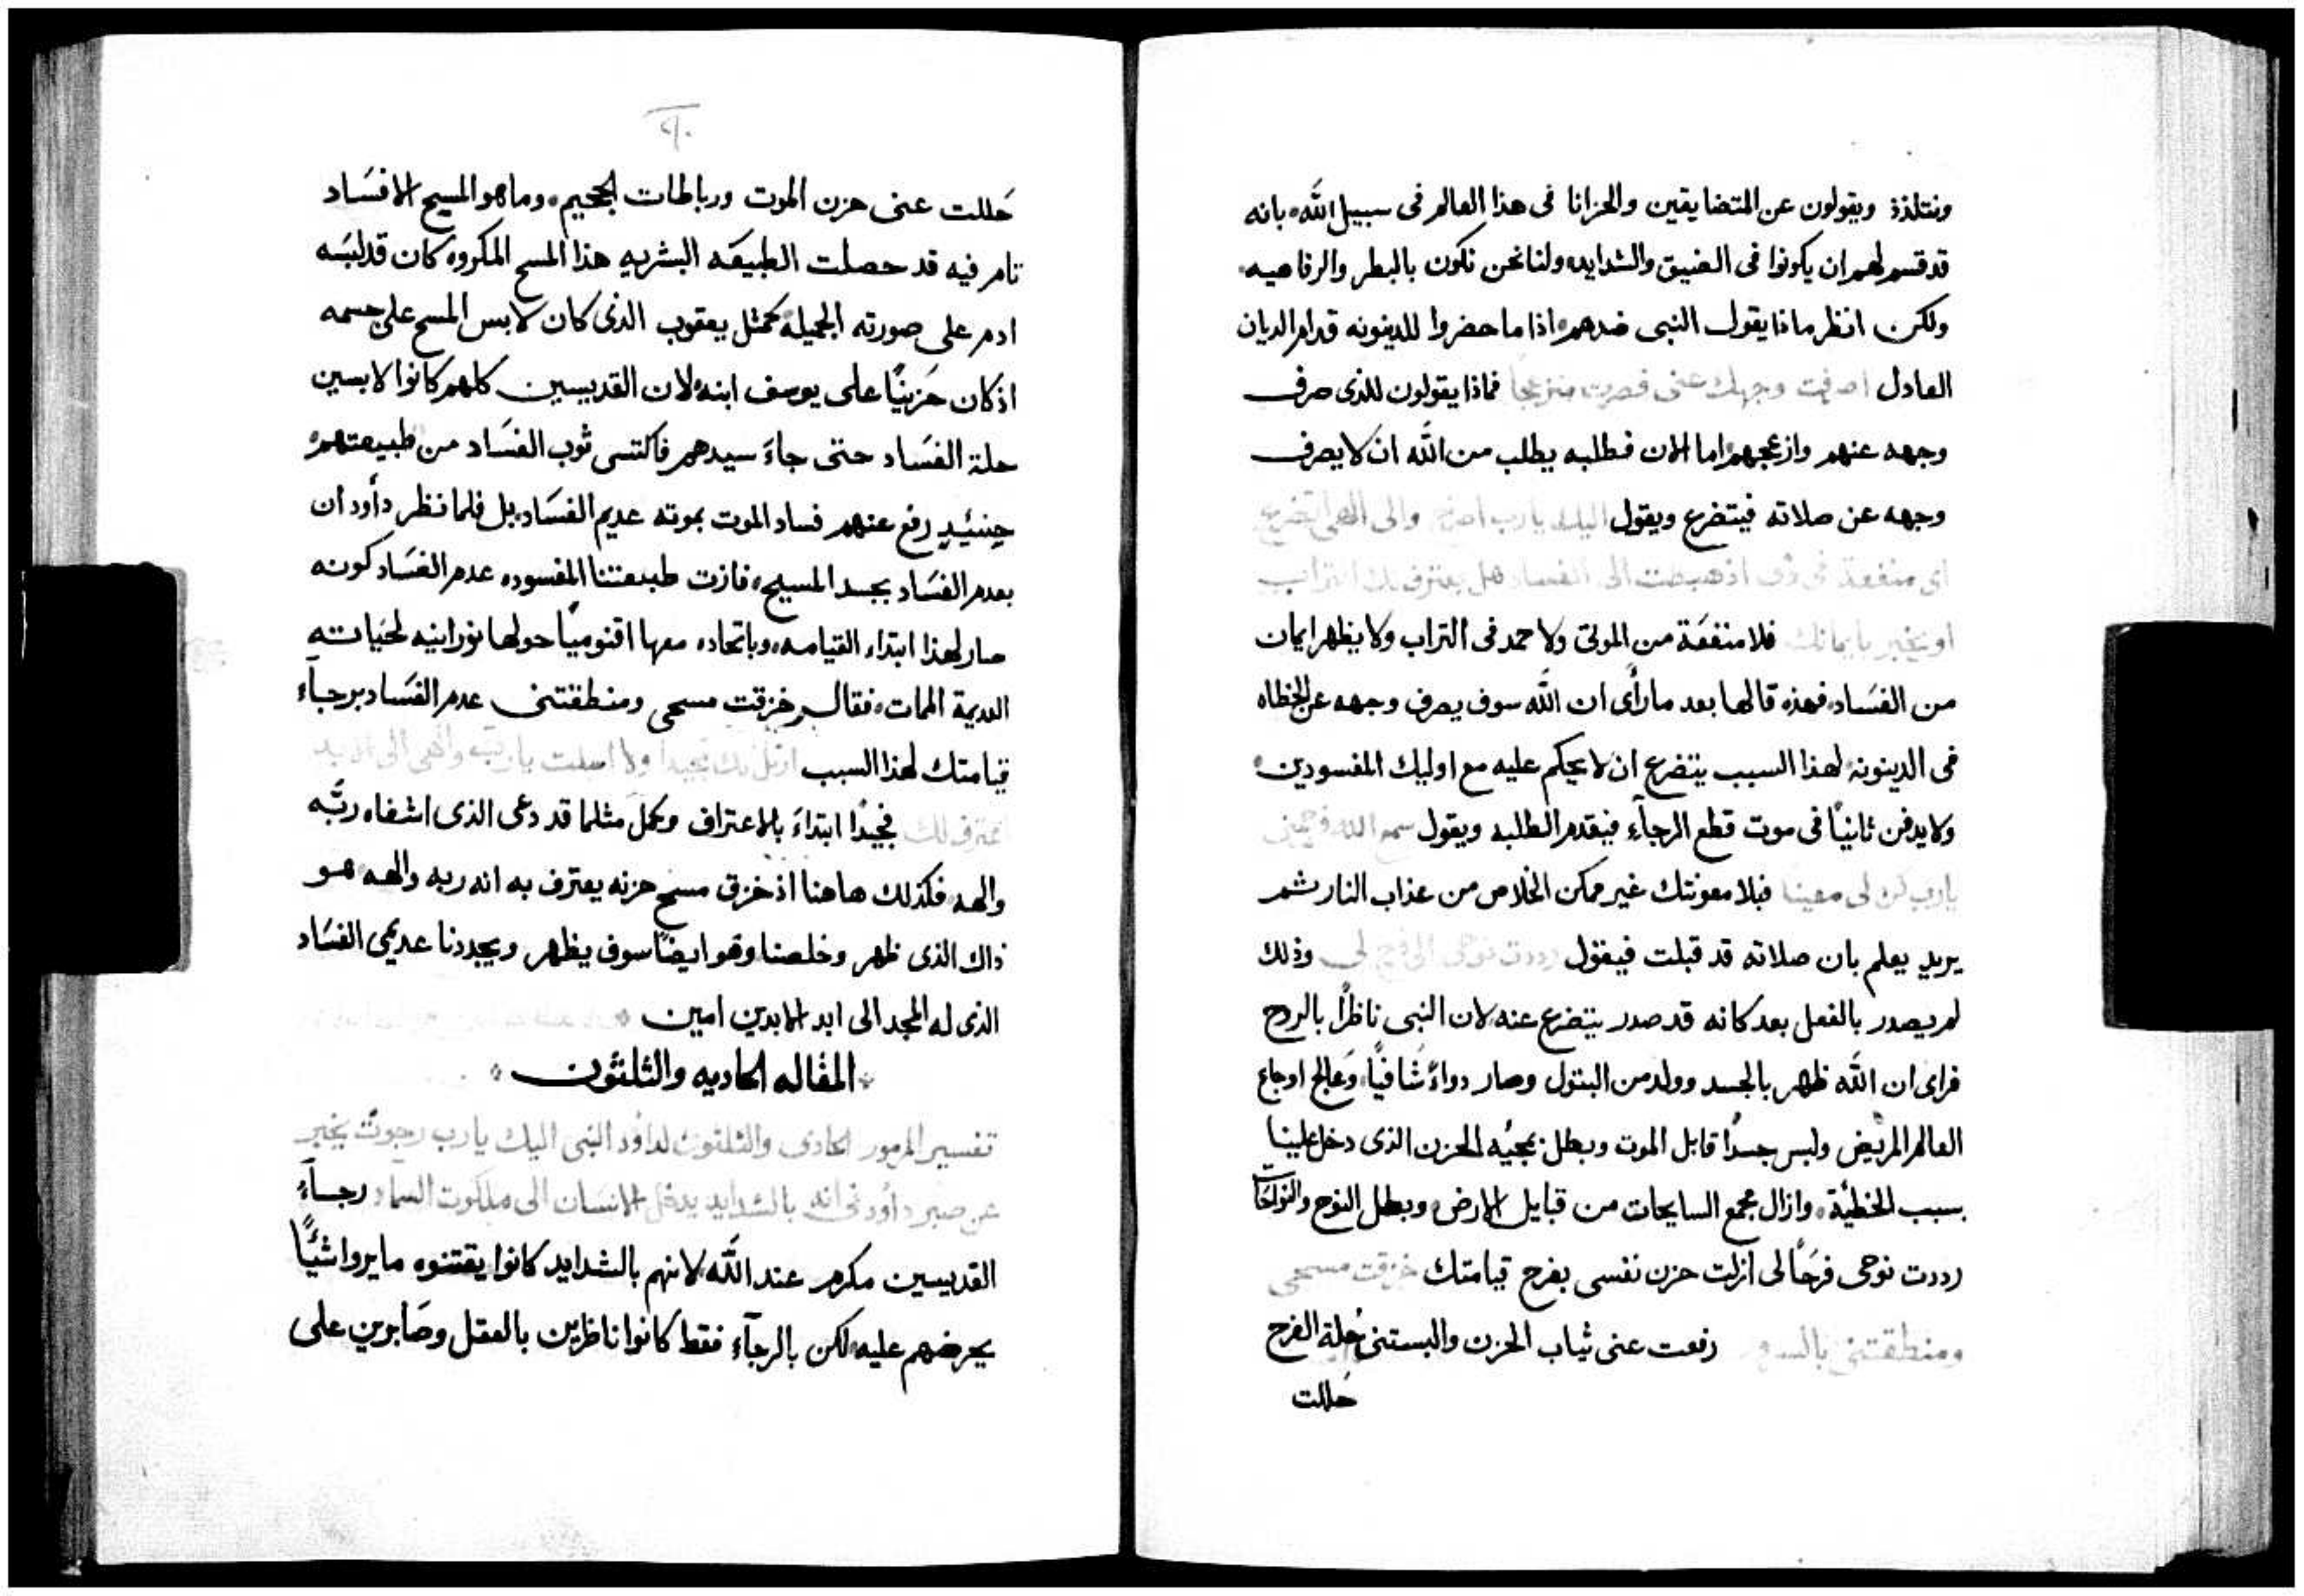 ونتلذذ ويقولون عن المتضايقين والحزانا فى هذا العالم فى سبيل الله، بانه
قد قسم لهم ان يكونوا فى الضيق والشدايد، ولنا نحن نكون بالبطر والرفاهيه،
ولكن انظر ماذا يقول النبى ضدهم، اذا ما حضروا للدينونه قدام الديان
العادل اصرفت وجهك عنى فصرت منزعجا فماذا يقولون للذى صرف
وجهه عنهم وازعجهم، اما الان فطلبه يطلب من الله ان لا يصرف
وجهه عن صلاته فيتضرع ويقول اليك يارب اصرخ والى الهى اتضرع
اى منفعة فى دمى اذ هبطت الى الفساد هل يعترف لك التراب
او يخبر بايمانك فلا منفعَة من الموتى ولا حمد فى التراب ولا يظهر ايمان
من الفسَاد، فهذه قالها بعد ما رأى ان الله سوف يصرف وجهه عن الخطاه
فى الدينونه، لهذا السبب يتضرع ان لا يحكم عليه مع اوليك المفسودين،
ولا يدفن ثانيًا فى موت قطع الرجآء فيقدم الطلبه ويقول سمع الله فرحمنى
يارب كن لى معينا فبلا معونتك غير ممكن الخلاص من عذاب النار ثم
يريد يعلم بان صلاته قد قبلت فيقول رددت نوحى الى فرح لى وذلك
لم يصدر بالفعل بعد كانه قد صدر يتضرع عنه، لان النبى ناظرًا بالروح
فراى ان الله ظهر بالجسد وولد من البتول وصار دواءً شافيًا، وعالج اوجاع
العالم المريض ولبس جسدًا قابل الموت وبطل بمجيُه الحزن الذى دخل علينا
بسبب الخطيَة، وازال مجمع السايحات من قبايل الارض، وبطل النوح والنواحَات
رددت نوحى فرحًا لى ازلت حزن نفسى بفرح قيامتك خزقت مسحى
ومنطقتنى بالسرور رفعت عنى ثياب الحزن والبستنى حُلة الفرح
حَللت
حَللت عنى حزن الموت ورباطات الجحيم، وما هو المسيح الا فسَاد
تام فيه قد حصلت الطبيعَه البشريه هذا المسح المكروه كان قد لبسَه
ادم على صورته الجميله، كمثل يعقوب الذى كان لابس المسح على جسمه
اذ كان حَزينًا على يوسف ابنه، لان القديسين كلهم كانوا لابسين
حلة الفسَاد حتى جاءَ سيدهم فاكتسى ثوب الفسَاد من طبيعتهم،
حينئيدٍ رفع عنهم فساد الموت بموته عديم الفسَاد، بل فلما نظر دأود ان
بعدم الفسَاد بجسد المسيح، فازت طبيعتنا المفسوده عدم الفسَاد كونه
صار لهذا ابتداء القيامه، وباتحاده معها اقنوميًا حولها نورانيه لحيَاته
العديمة الممات، فقال خزقت مسحى ومنطقتنى عدم الفسَاد برجآء
قيامتك لهذا السبب ارتل لك تمجيدا ولا اصمت يا ربّ والهى الى الابد
نعترف لك فجيدًا ابتداءَ بالاعتراف وكمل مثلما قد دعى الذى اشفاه ربَّه
والهه، فكذلك هاهنا اذ خزق مسح حزنه يعترف به انه ربه والهه هو
ذاك الذى ظهر وخلصنا وهو ايضًا سوف يظهر ويجددنا عديمى الفسَاد
الذى له المجد الى ابد الابدين امين
المقاله الحاديه والثلثون
تفسير المزمور الحادى والثلثون لداوُد النبى اليك يارب رجوت يخبر
عن صبر دأود فى انه بالشدايد يدخل الانسَان الى ملكوت السماء رجآءُ
القديسين مكرم عند الله، لانهم بالشدايد كانوا يقتنوه ما يروا شيئًا
يحرضهم عليه، لكن بالرجآء فقط كانوا ناظرين بالعقل وصَابرين على